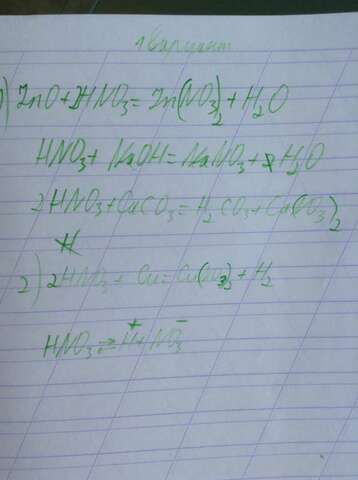 1 Вариант
1) ZnO + 2HNO₃ = Zn(NO₃)₂ + H₂O
HNO₃ + NaOH = NaNO₃ + H₂O
2HNO₃ + CaCO₃ = H₂CO₃ + Ca(NO₃)₂
2) 2HNO₃ + Cu = Cu(NO₃)₂ + H₂
HNO₃ ⇄ H⁺ + NO₃⁻